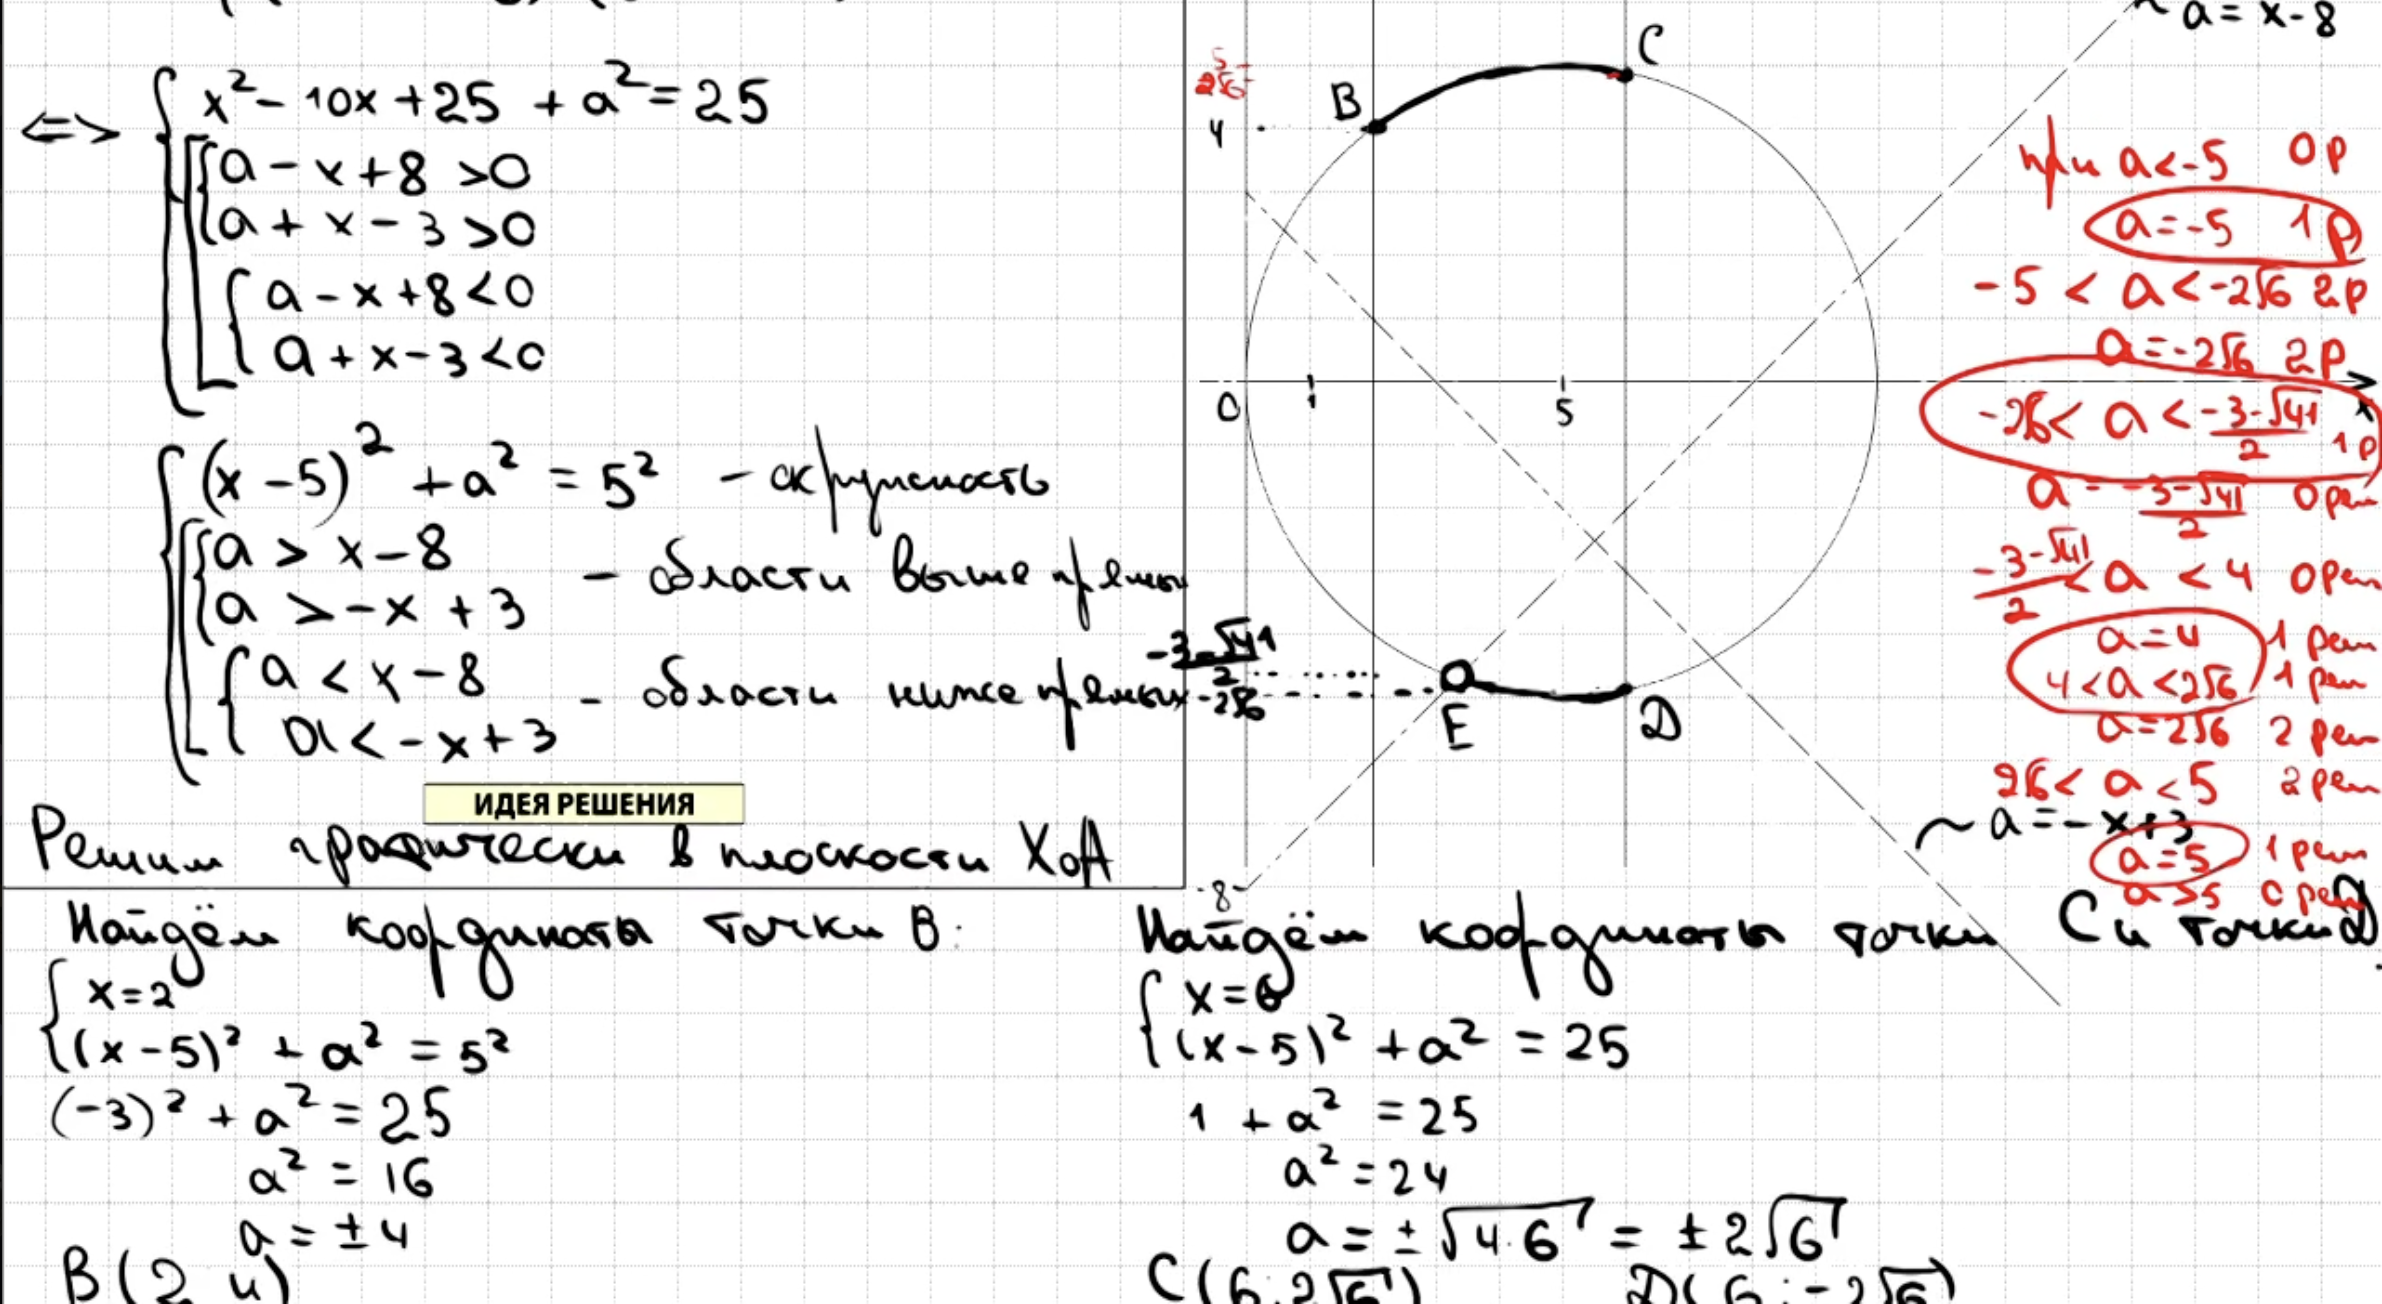 a = x-8
⇔ { x² - 10x + 25 + a² = 25
a - x + 8 > 0
a + x - 3 > 0
a - x + 8 < 0
a + x - 3 < 0
(x - 5)² + a² = 5² - окружность
a > x - 8
a > -x + 3
- области выше прямых
a < x - 8
a < -x + 3
- области ниже прямых
ИДЕЯ РЕШЕНИЯ
Решим графически в плоскости XOA
5
2√6
4
B
C
0
1
5
x
(-3-√41)/2
-2√6
E
D
-8
a = -x+3
при a < -5 0 р
a = -5 1 р
-5 < a < -2√6 2 р
a = -2√6 2 р
-2√6 < a < (-3-√41)/2 1 р
a = (-3-√41)/2 0 реш
(-3-√41)/2 < a < 4 0 реш
a = 4 1 реш
4 < a < 2√6 1 реш
a = 2√6 2 реш
2√6 < a < 5 2 реш
a = 5 1 реш
a > 5 0 реш
Найдём координаты точки B:
{ x = 2
(x - 5)² + a² = 5²
(-3)² + a² = 25
a² = 16
a = ±4
B(2 4)
Найдём координаты точки C и точки D
{ x = 6
(x - 5)² + a² = 25
1 + a² = 25
a² = 24
a = ±√4·6 = ±2√6
C(6; 2√6) D(6; -2√6)